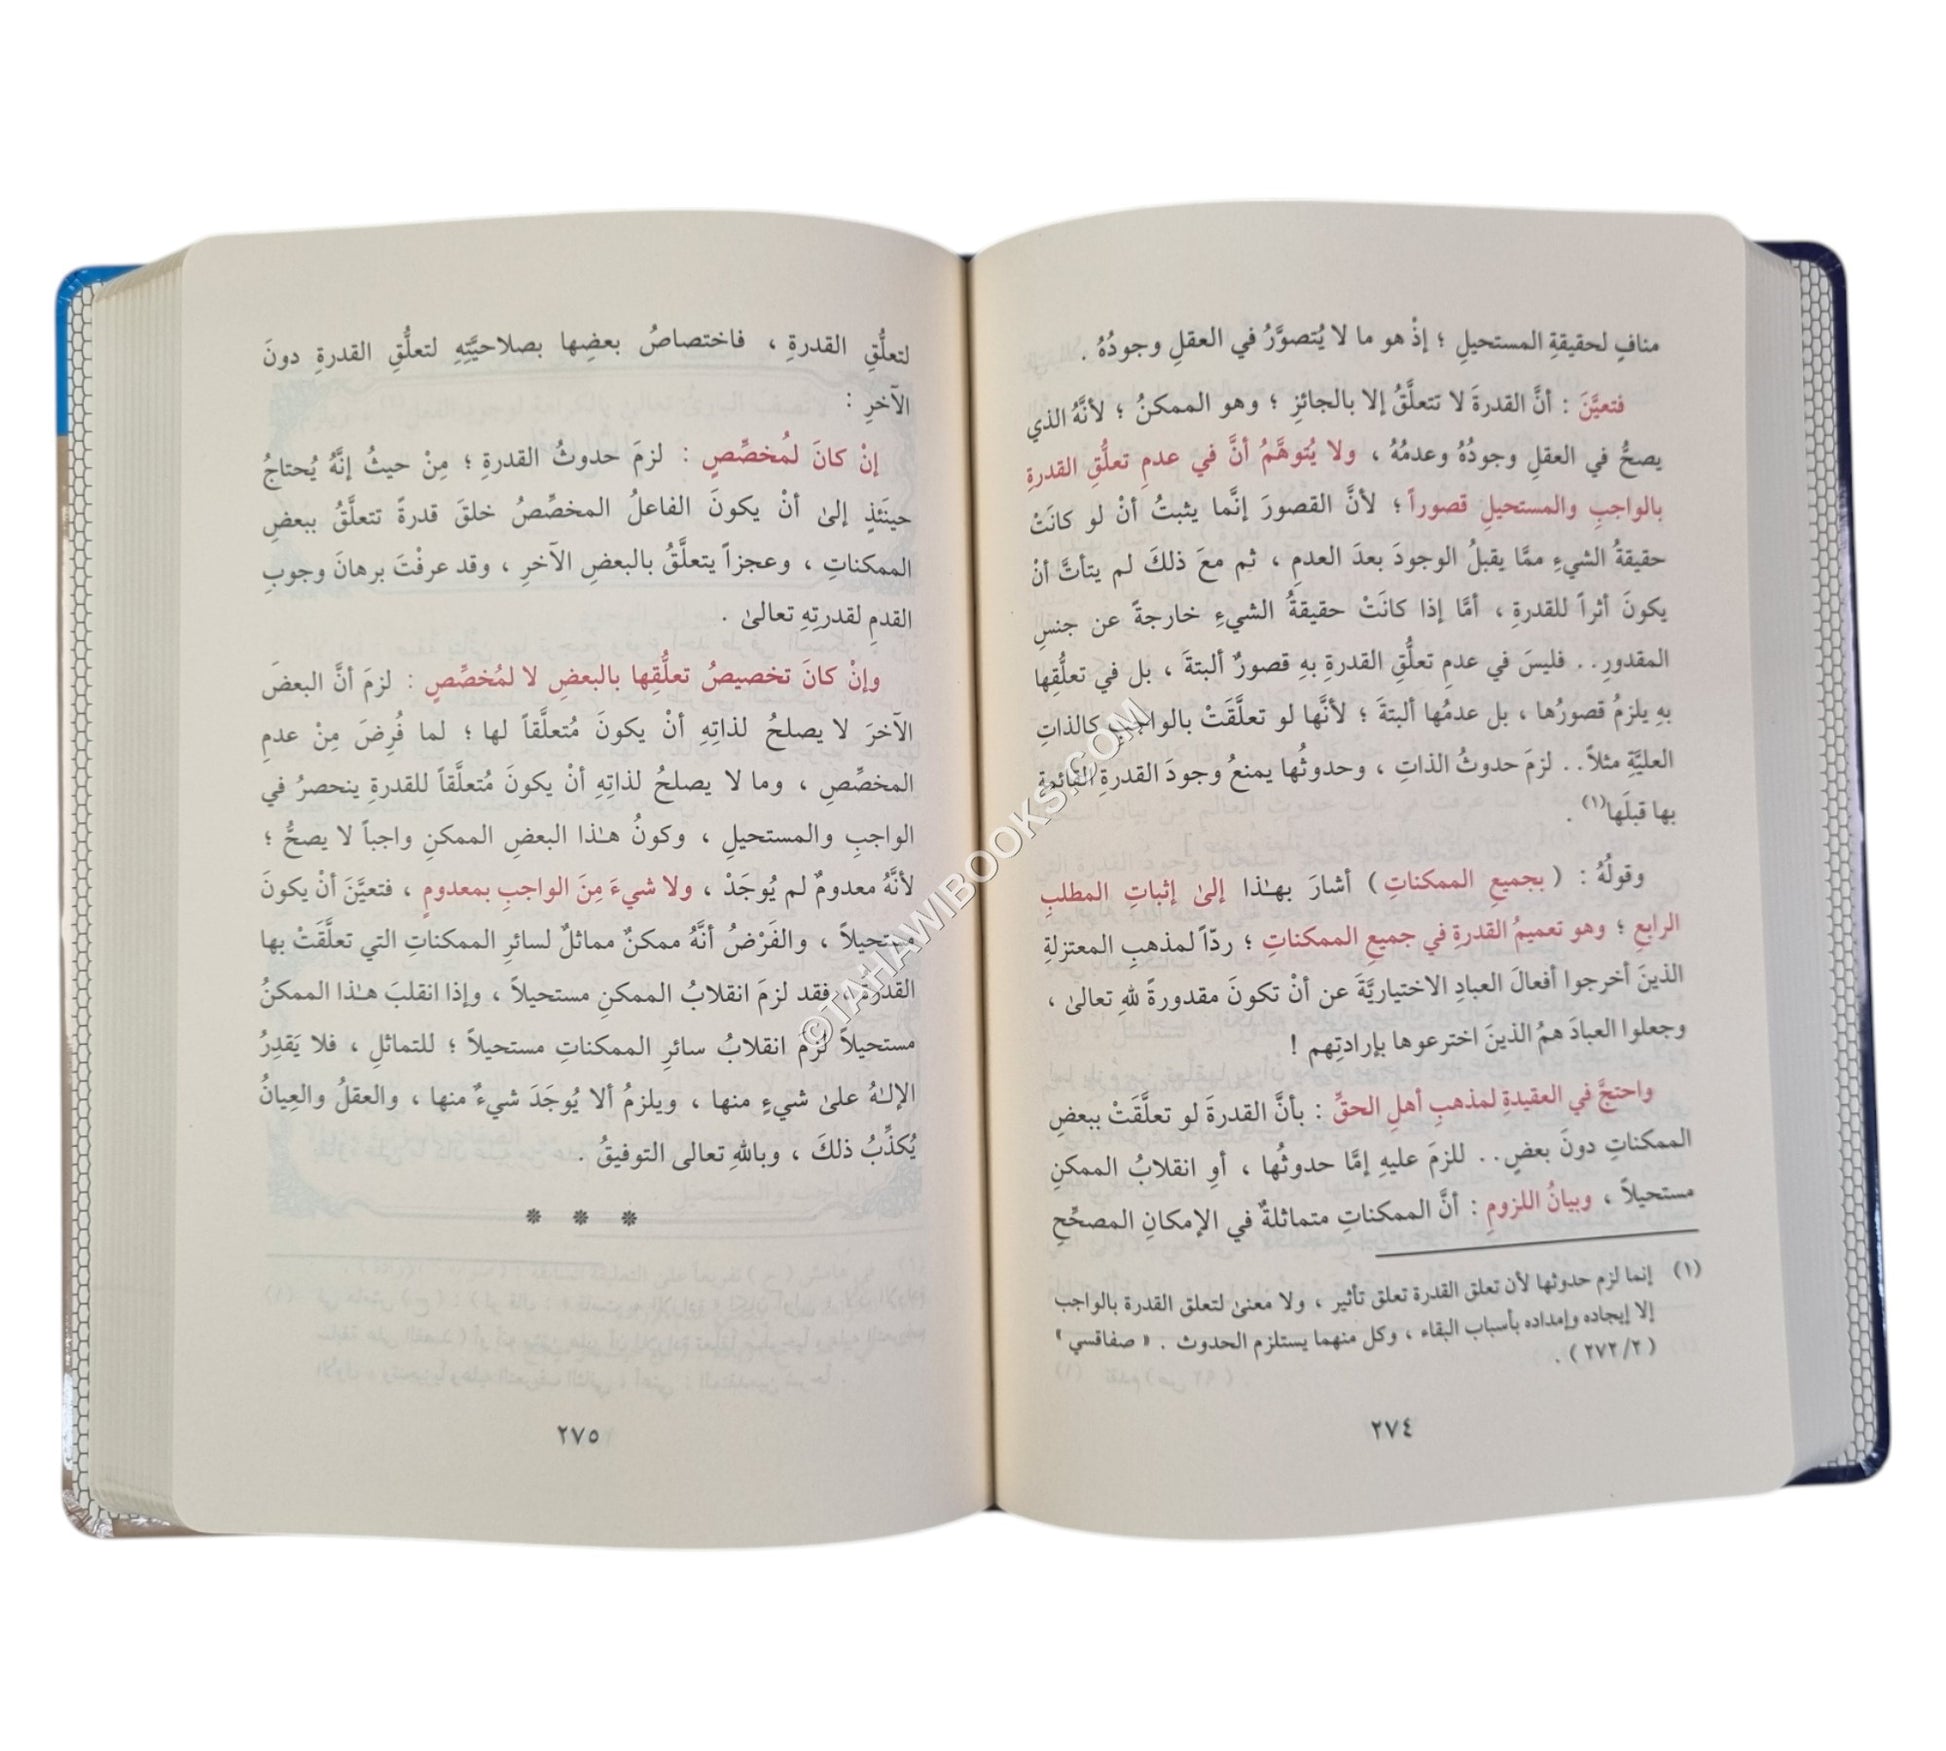 منافٍ لحقيقةِ المستحيلِ ؛ إذْ هو ما لا يُتصوَّرُ في العقلِ وجودُهُ .
فتعيَّنَ : أنَّ القدرةَ لا تتعلَّقُ إلا بالجائزِ ؛ وهو الممكنُ ؛ لأنَّهُ الذي
يصحُّ في العقلِ وجودُهُ وعدمُهُ ، ولا يُتوهَّمُ أنَّ في عدمِ تعلُّقِ القدرةِ
بالواجبِ والمستحيلِ قصوراً ؛ لأنَّ القصورَ إنَّما يثبتُ أنْ لو كانَتْ
حقيقةُ الشيءِ ممَّا يقبلُ الوجودَ بعدَ العدمِ ، ثم معَ ذلكَ لم يتأتَّ أنْ
يكونَ أثراً للقدرةِ ، أمَّا إذا كانَتْ حقيقةُ الشيءِ خارجةً عن جنسِ
المقدورِ.. فليسَ في عدمِ تعلُّقِ القدرةِ بهِ قصورٌ ألبتةَ ، بل في تعلُّقِها
بهِ يلزمُ قصورُها ، بل عدمُها ألبتةَ ؛ لأنَّها لو تعلَّقَتْ بالواجبِ كالذاتِ
العليَّةِ مثلاً.. لزمَ حدوثُ الذاتِ ، وحدوثُها يمنعُ وجودَ القدرةِ القائمةِ
بها قبلَها(١) .
وقولُهُ : ( بجميعِ الممكناتِ ) أشارَ بهـٰذا إلىٰ إثباتِ المطلبِ
الرابعِ ؛ وهو تعميمُ القدرةِ في جميعِ الممكناتِ ؛ ردّاً لمذهبِ المعتزلةِ
الذينَ أخرجوا أفعالَ العبادِ الاختياريَّةَ عن أنْ تكونَ مقدورةً للهِ تعالىٰ ،
وجعلوا العبادَ همُ الذينَ اخترعوها بإرادتِهم !
واحتجَّ في العقيدةِ لمذهبِ أهلِ الحقِّ : بأنَّ القدرةَ لو تعلَّقَتْ ببعضِ
الممكناتِ دونَ بعضٍ.. للزمَ عليهِ إمَّا حدوثُها ، أوِ انقلابُ الممكنِ
مستحيلاً ، وبيانُ اللزومِ : أنَّ الممكناتِ متماثلةٌ في الإمكانِ المصحِّحِ
(١) إنما لزم حدوثها لأن تعلق القدرة تعلق تأثير ، ولا معنىٰ لتعلق القدرة بالواجب
إلا إيجاده وإمداده بأسباب البقاء ، وكل منهما يستلزم الحدوث . « صفاقسي »
( ٢٧٢/٢ ) .
٢٧٤
لتعلُّقِ القدرةِ ، فاختصاصُ بعضِها بصلاحيَّتِهِ لتعلُّقِ القدرةِ دونَ
الآخرِ :
إنْ كانَ لمُخصِّصٍ : لزمَ حدوثُ القدرةِ ؛ مِنْ حيثُ إنَّهُ يُحتاجُ
حينَئذٍ إلىٰ أنْ يكونَ الفاعلُ المخصِّصُ خلقَ قدرةً تتعلَّقُ ببعضِ
الممكناتِ ، وعجزاً يتعلَّقُ بالبعضِ الآخرِ ، وقد عرفْتَ برهانَ وجوبِ
القدمِ لقدرتِهِ تعالىٰ .
وإنْ كانَ تخصيصُ تعلُّقِها بالبعضِ لا لمُخصِّصٍ : لزمَ أنَّ البعضَ
الآخرَ لا يصلحُ لذاتِهِ أنْ يكونَ مُتعلَّقاً لها ؛ لما فُرِضَ مِنْ عدمِ
المخصِّصِ ، وما لا يصلحُ لذاتِهِ أنْ يكونَ مُتعلَّقاً للقدرةِ ينحصرُ في
الواجبِ والمستحيلِ ، وكونُ هـٰذا البعضِ الممكنِ واجباً لا يصحُّ ؛
لأنَّهُ معدومٌ لم يُوجَدْ ، ولا شيءَ مِنَ الواجبِ بمعدومٍ ، فتعيَّنَ أنْ يكونَ
مستحيلاً ، والفَرْضُ أنَّهُ ممكنٌ مماثلٌ لسائرِ الممكناتِ التي تعلَّقَتْ بها
القدرةُ ، فقد لزمَ انقلابُ الممكنِ مستحيلاً ، وإذا انقلبَ هـٰذا الممكنُ
مستحيلاً لزمَ انقلابُ سائرِ الممكناتِ مستحيلاً ؛ للتماثلِ ، فلا يَقدِرُ
الإلـٰهُ علىٰ شيءٍ منها ، ويلزمُ ألا يُوجَدَ شيءٌ منها ، والعقلُ والعِيانُ
يُكذِّبُ ذلكَ ، وباللهِ تعالى التوفيقُ .
* * *
٢٧٥
©TAHAWIBOOKS.COM